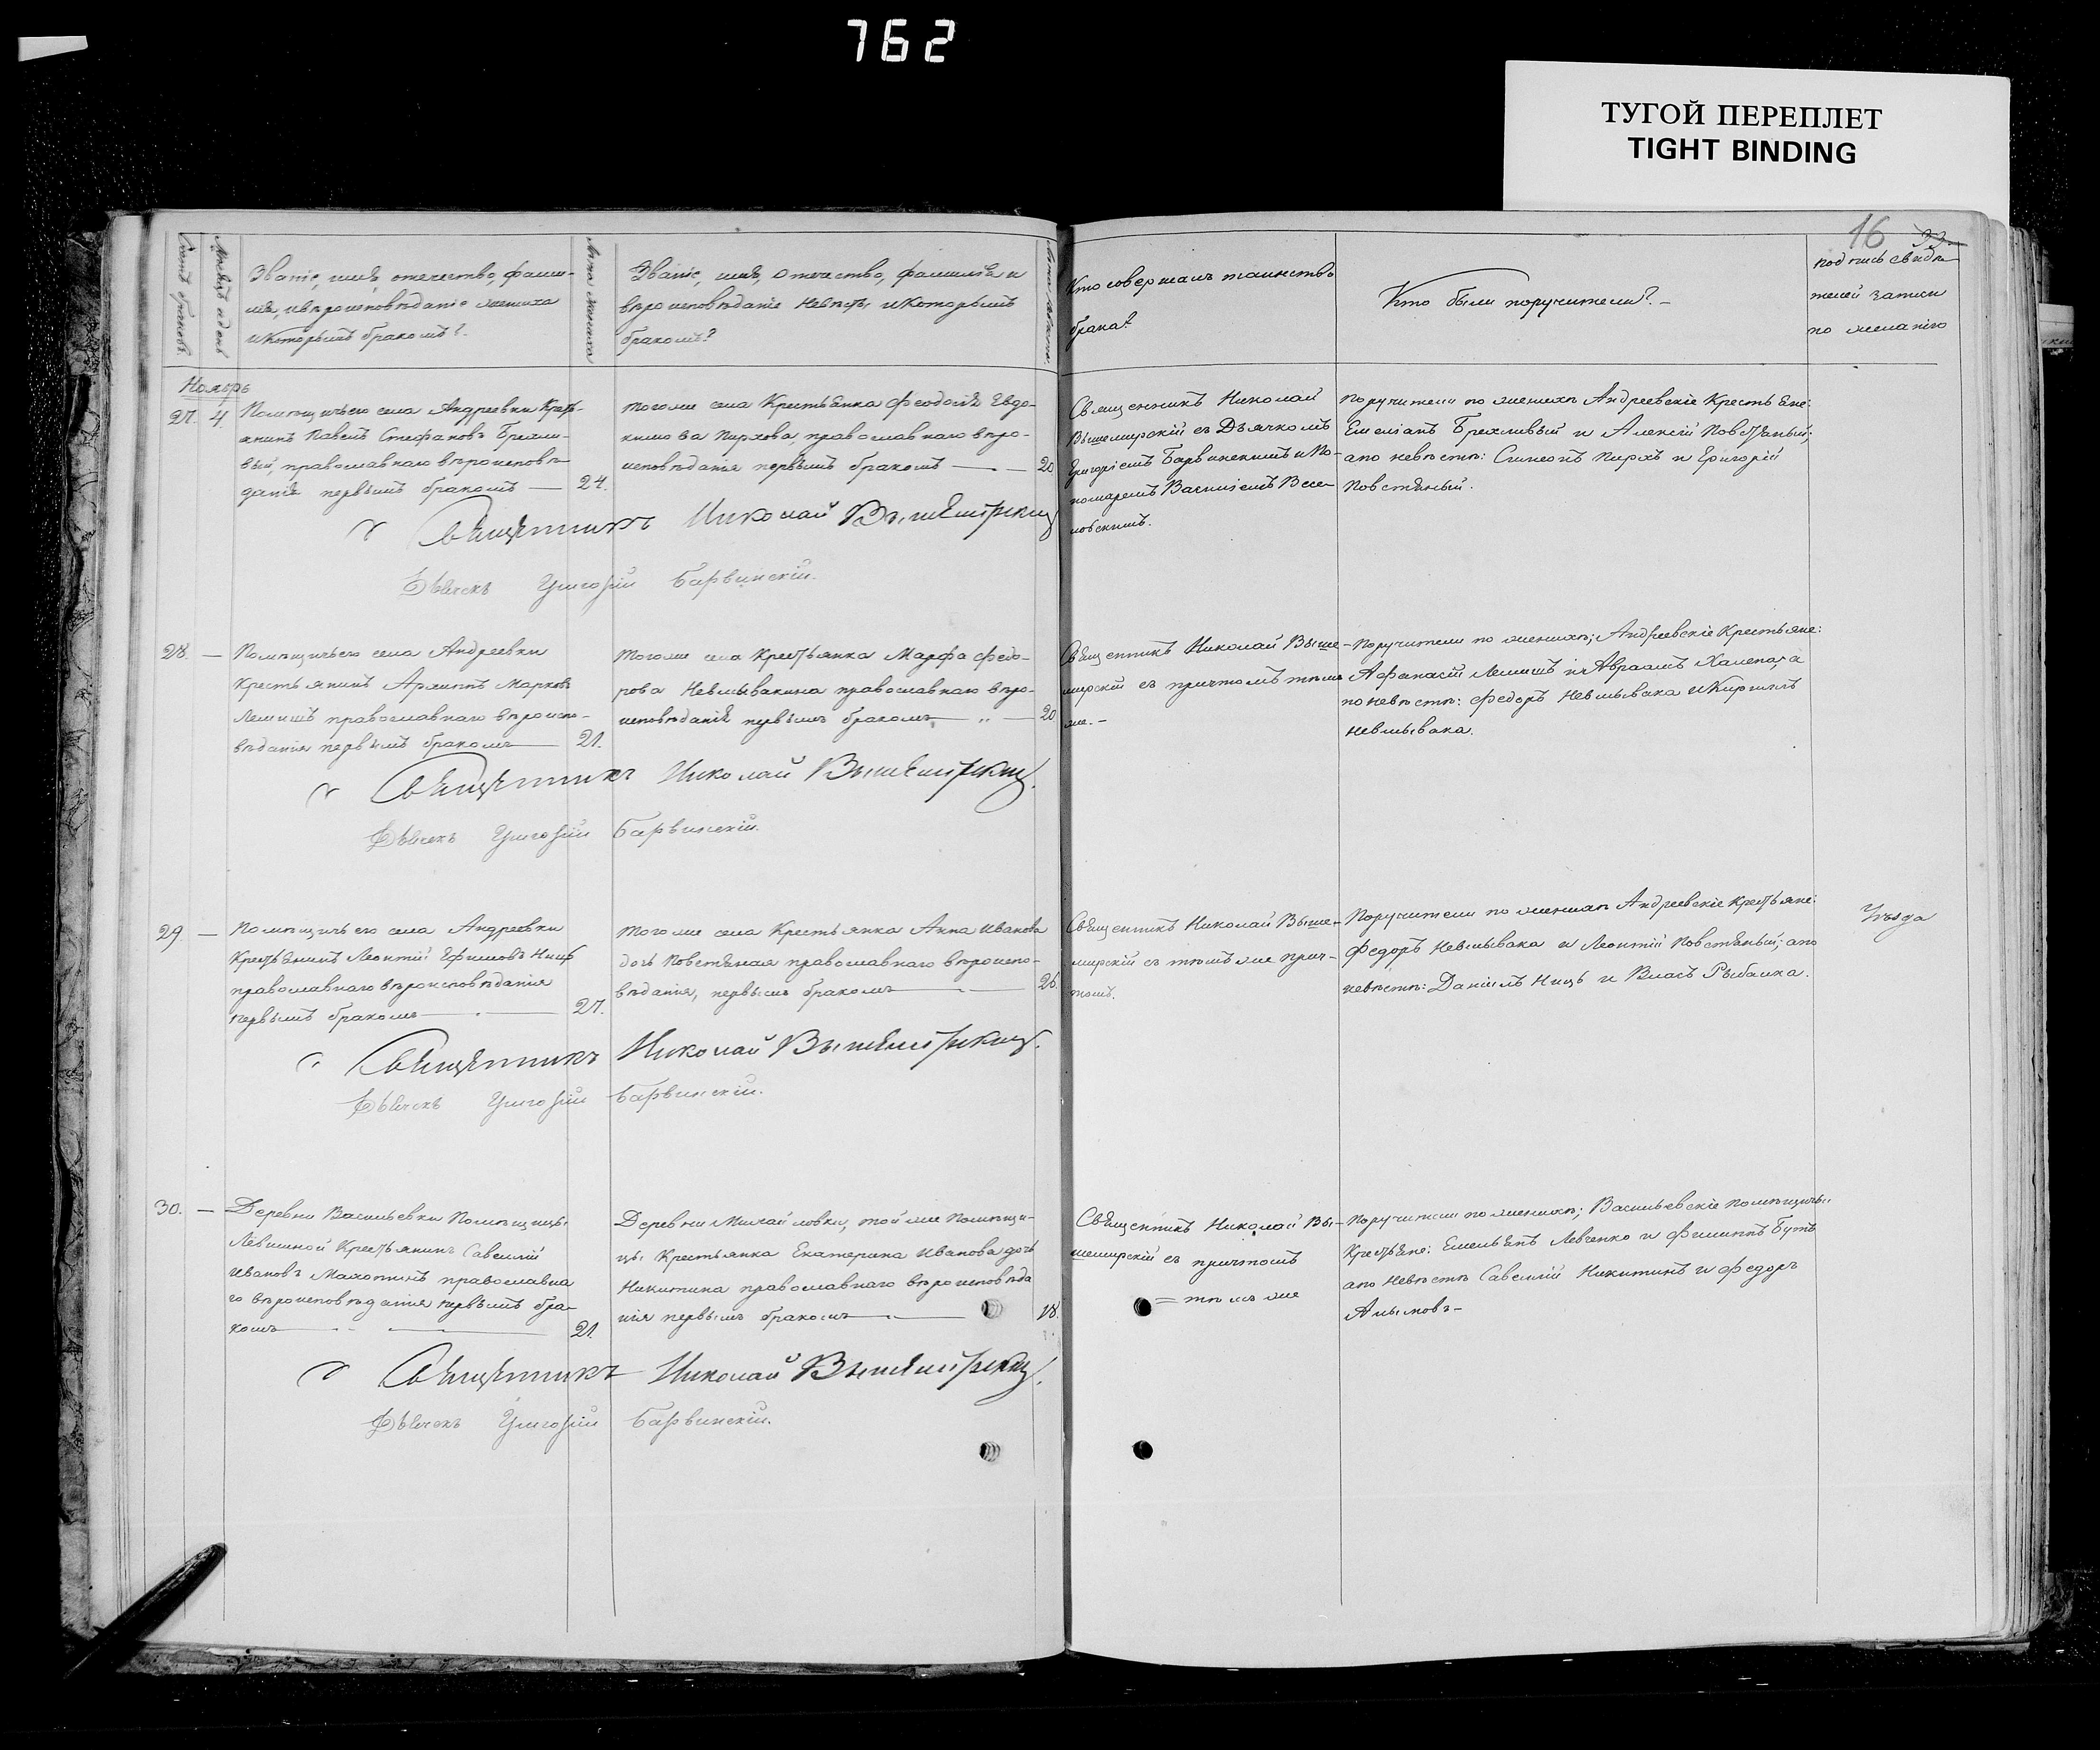 762
ТУГОЙ ПЕРЕПЛЕТ
TIGHT BINDING
16
33
Счетъ браковъ.
Мѣсяцъ и день
Званіе, имя, отечество, фами-
лія, и вѣроисповѣданіе жениха
и которымъ бракомъ?
Лѣта жениха
Званіе, имя, отечество, фамилія и
вѣроисповѣданіе невѣсты и которымъ
бракомъ?
Лѣта невѣсты.
Кто совершалъ таинство
брака?
Кто были поручители?
подпись свидѣ-
телей записи
по желанію
Ноябрь
27. 4.
Помѣщичьего села Андреевки Кресть-
янинъ Павелъ Стефановъ Брехли-
вый, православнаго вѣроисповѣ-
данія первымъ бракомъ — 24.
тогоже села Крестьянка Феодосія Евдо-
кимова Пирхова, православнаго вѣро-
исповѣданія первымъ бракомъ — 20
Священникъ Николай
Вышемирскій съ Дьячкомъ
Григоріемъ Барвинскимъ и По-
номаремъ Василіемъ Весе-
ловскимъ.
Поручители по женихѣ Андреевскіе Крестьяне:
Емеліанъ Брехливый и Алексій Повстяный;
апо невѣстѣ: Симеонъ Пирхъ и Григорій
Повстяный.
Священникъ Николай Вышемирскій
Дьячекъ Григорій Барвинскій.
28. —
Помѣщичьего села Андреевки
Крестьянинъ Архиппъ Марковъ
Лемишъ православнаго вѣроиспо-
вѣданія первымъ бракомъ — 21.
тогоже села Крестьянка Марфа Федо-
рова Невмывакина православнаго вѣро-
исповѣданія первымъ бракомъ — 20
Священникъ Николай Выше-
мирскій съ причтомъ тѣмъ
же. —
Поручители по женихѣ; Андреевскіе Крестьяне:
Афанасій Лемишъ и Авраамъ Халепаха
по невѣстѣ: Федоръ Невмывака и Кириллъ
Невмывака.
Священникъ Николай Вышемирскій.
Дьячекъ Григорій Барвинскій.
29. —
Помѣщичьего села Андреевки
Крестьянинъ Леонтій Ефимовъ
православнаго вѣроисповѣданія
первымъ бракомъ — 27.
тогоже села Крестьянка Анна Иванова
дочь Повстяная православнаго вѣроиспо-
вѣданія, первымъ бракомъ — 26.
Священникъ Николай Выше-
мирскій съ тѣмъ же прич-
томъ.
Поручители по женихѣ Андреевскіе Крестьяне:
Федоръ Невмывака и Леонтій Повстяный; апо
невѣстѣ: Даніилъ и Власъ Рыбалка.
Уѣзда
Священникъ Николай Вышемирскій.
Дьячекъ Григорій Барвинскій.
30. —
Деревни Васильевки Помѣщицы
Левшиной Крестьянинъ Савелій
Ивановъ Махотинъ православна
го вѣроисповѣданія первымъ бра-
комъ — 21.
Деревни Михайловки, той же Помѣщи-
цы Крестьянка Екатерина Иванова дочь
Никитина православнаго вѣроисповѣда
нія первымъ бракомъ — 18.
Священникъ Николай Вы-
шемирскій съ причтомъ
= тѣмъ же
Поручители по женихѣ; Васильевскіе помѣщичьи
Крестьяне: Емельянъ Левченко и Филиппъ Бутъ
апо невѣстѣ Савелій Никитинъ и Федоръ
Алымовъ —
Священникъ Николай Вышемирскій.
Дьячекъ Григорій Барвинскій.